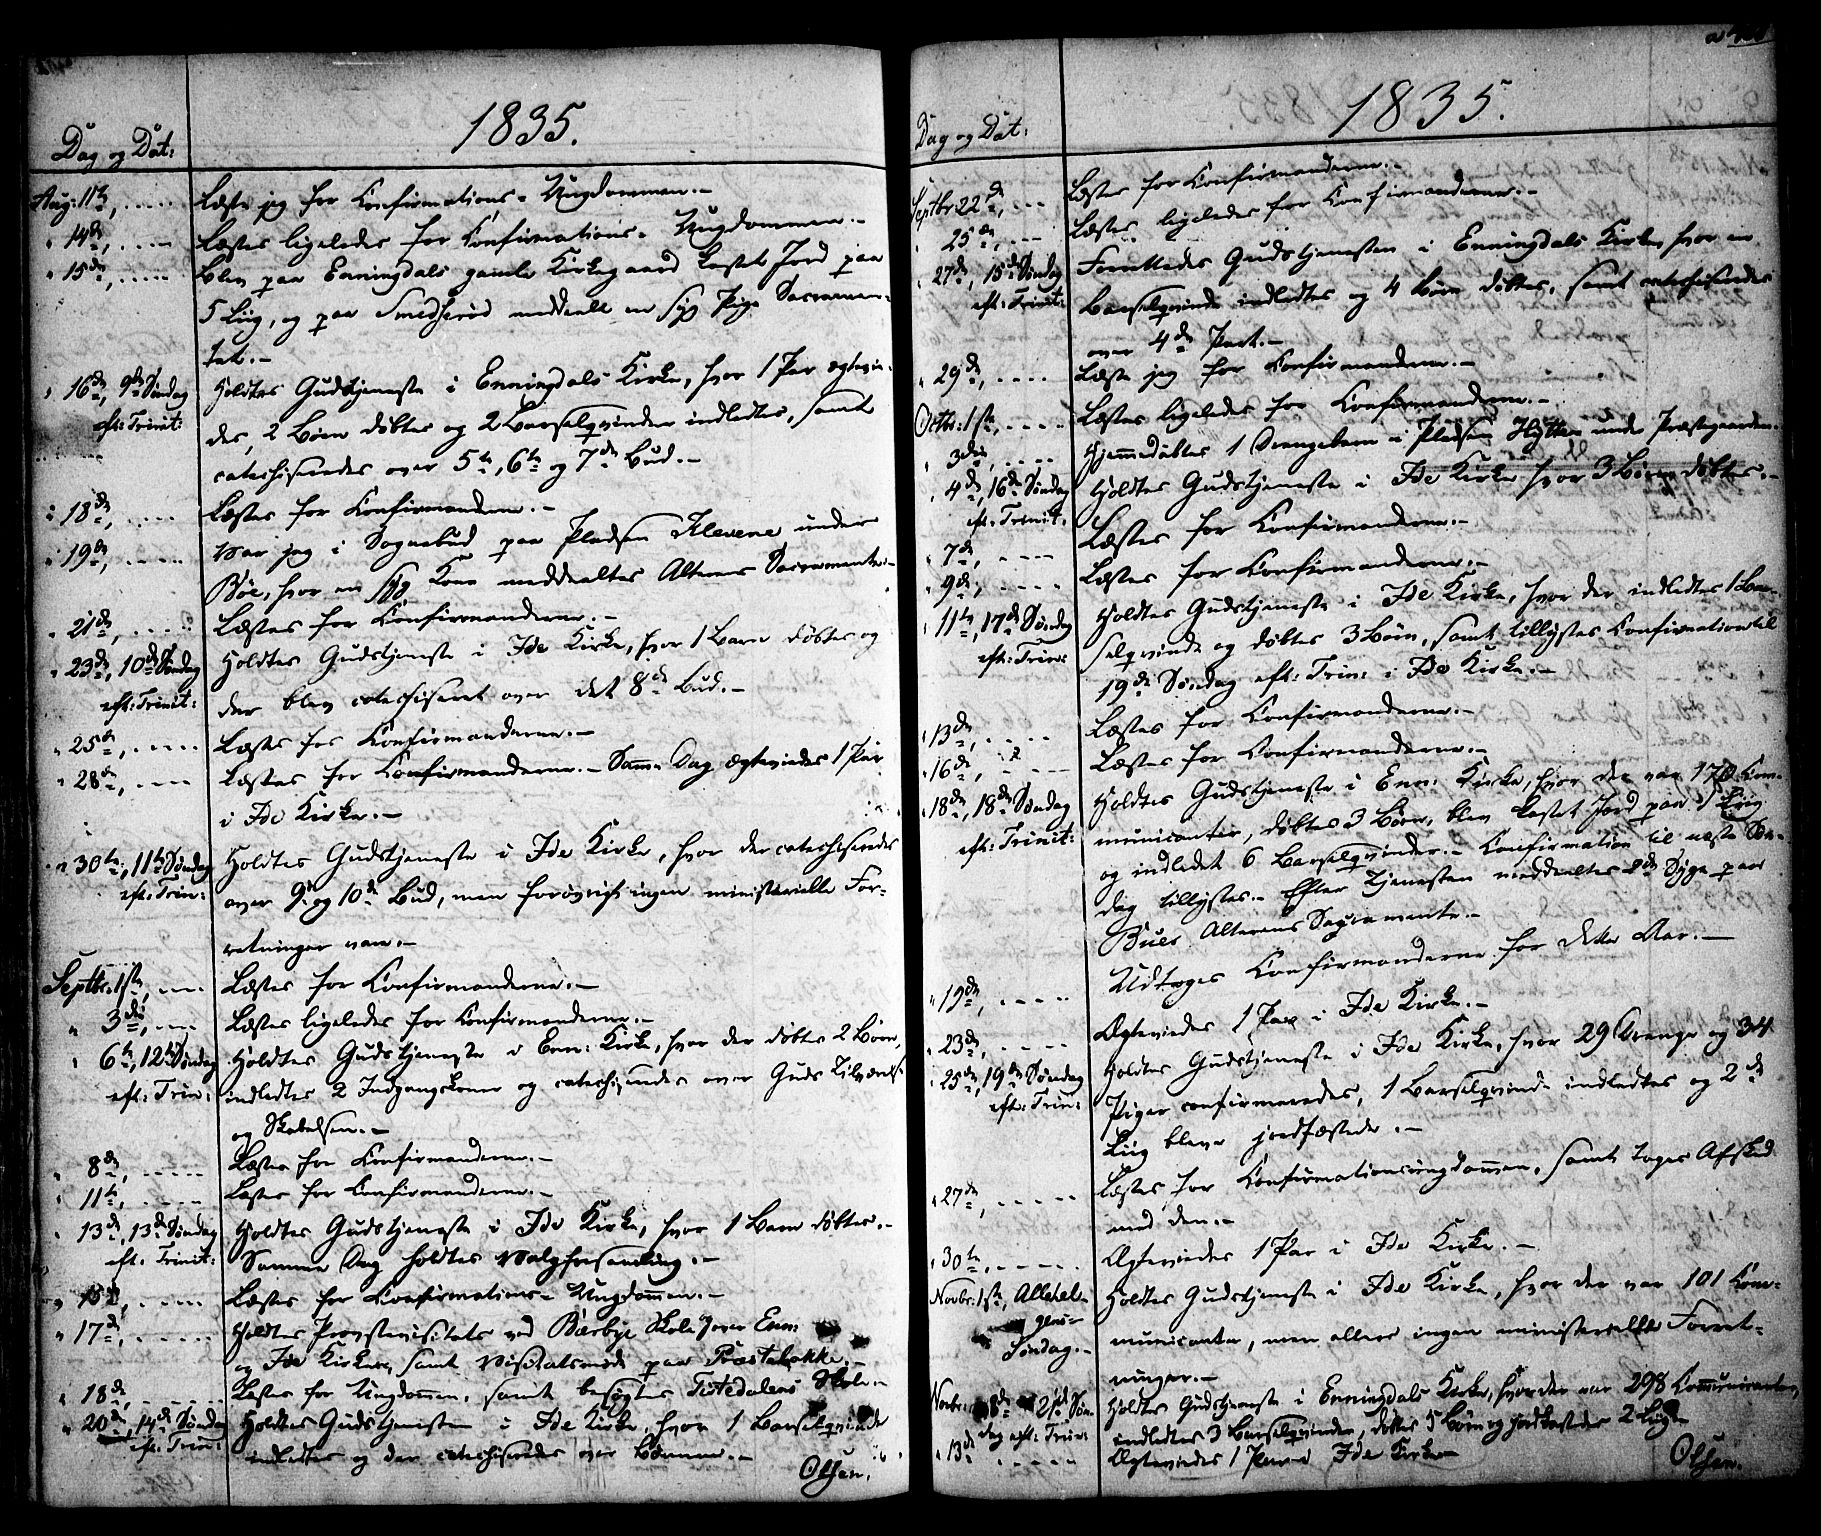 1835.
Dag og Dat:
Aug: 11te, Læste jeg for Confirmations-Ungdommen.-
" 14de, Læstes ligeledes for Confirmations-Ungdommen.-
" 15de, Blev paa Enningdals gamle Kirkegaard kastet Jord paa
5 Liig, og paa Smedserød meddeelt en syg Pige Sacramen-
tet.-
" 16de, 9de Søndag Holdtes Gudstjeneste i Enningdals Kirke, hvor 1 Par ægtevie-
eft: Trinit: des, 2 Børn døbtes og 2 Barselqvinder indledtes, samt
catechiseredes over 5te, 6te og 7de Bud.-
" 18de, Læstes for Confirmanderne.-
" 19de, Var jeg i Sognebud paa Pladsen Klevene under
Bøe, hvor en syg Kone meddeeltes Alterens Sacramente.-
" 21de, Læstes for Confirmanderne.-
" 23de, 10de Søndag Holdtes Gudstjeneste i Ide Kirke, hvor 1 Barn døbtes og
eft: Trinit: der blev catechiseret over det 8de Bud.-
" 25de, Læstes for Confirmanderne.-
" 28de, Læstes for Confirmanderne.- Samme Dag ægteviedes 1 Par
i Ide Kirke.-
" 30te, 11te Søndag Holdtes Gudstjeneste i Ide Kirke, hvor der catechiseredes
eft: Trin: over 9de og 10de Bud, men forøvrigt ingen ministerielle For-
retninger vare.-
Septbr: 1ste, Læstes for Confirmanderne.-
" 3die, Læstes ligeledes for Confirmanderne.-
" 6te, 12te Søndag Holdtes Gudstjeneste i Enn: Kirke, hvor der døbtes 2 Børn,
eft: Trin: indledtes 2 Indgangskoner og catechiseredes over Guds Tilværelse
og Skabelsen.-
" 8de, Læstes for Confirmanderne.-
" 11te, Læstes for Confirmanderne.-
" 13de, 13de Søndag Holdtes Gudstjeneste i Ide Kirke, hvor 1 Barn døbtes.-
eft: Trinit: Samme Dag holdtes Valgforsamling.-
" 15de, Læstes for Confirmations-Ungdommen.-
" 17de, Holdtes Provstevisitats ved Berbye Skole over Enn:
og Ide Kirker, samt Visitatsmøde paa Præstebakke.-
" 18de, Læstes for Ungdommen, samt besøgtes Tistedalens Skole.-
" 20de, 14de Søndag Holdtes Gudstjenesten i Ide Kirke, hvor 1 Barselqvinde
eft: Trin: indledtes og der catechiseredes over Bønnen.-
Olsen.
1835.
Dag og Dat:
Septbr 22de, Læstes for Confirmanderne.-
" 25de, Læstes ligeledes for Confirmanderne.-
" 27de, 15de Søndag Forrettedes Gudstjenesten i Enningdals Kirke, hvor en
eft: Trinit: Barselqvinde indledtes og 4 Børn døbtes, samt catechiseredes
over 4de Part.-
" 29de, Læste jeg for Confirmanderne.-
Octbr: 1ste, Læstes ligeledes for Confirmanderne.-
" 3die, Hjemmedøbtes 1 Drengebarn i Pladsen Hytten under Præstegaarden.
" 4de, 16de Søndag Holdtes Gudstjeneste i Ide Kirke hvor 3 Børn døbtes.-
eft: Trinit:
" 7de, Læstes for Confirmanderne.-
" 9de, Læstes for Confirmanderne.-
" 11te, 17de Søndag Holdtes Gudstjeneste i Ide Kirke, hvor der indledtes 1 Bar-
eft: Trin: selqvinde og døbtes 3 Børn, samt tillystes Confirmation til
19de Søndag eft: Trin: i Ide Kirke.-
" 13de, Læstes for Confirmanderne.-
" 16de, Læstes for Confirmanderne.-
" 18de, 18de Søndag Holdtes Gudstjeneste i Enn: Kirke, hvor der var 170 Com-
eft: Trinit: municanter, døbtes 3 Børn, blev kastet Jord paa 1 Liig
og indledet 6 Barselqvinder.- Confirmation til næste Søn-
dag tillystes.- Efter Tjenesten meddeeltes 2de Syge paa
Buer Alterens Sacramente.-
" 19de, Udtoges Confirmanderne for dette Aar.-
" 23de, Ægteviedes 1 Par i Ide Kirke.-
" 25de, 19de Søndag Holdtes Gudstjeneste i Ide Kirke, hvor 29 Drenge og 34
eft: Trin: Piger confirmeredes, 1 Barselqvinde indledtes og 2de
Liig bleve jordfæstede.-
" 27de, Læstes for Confirmationsungdommen, samt toges Afsked
med den.-
" 30te, Ægteviedes 1 Par i Ide Kirke.-
Novbr: 1ste, Allehel- Holdtes Gudstjeneste i Ide Kirke, hvor der var 101 Com-
gens- municanter, men ellers ingen ministerielle Forret-
Søndag.- ninger.-
Novbr: 8de 21de Søn- Holdtes Gudstjeneste i Enningdals Kirke, hvor der var 298 Communicanter,
dag eft: Trin: indledtes 3 Barselqvinder, døbtes 5 Børn og jordkastedes 2 Liig.
" 13de Ægteviedes 1 Par i Ide Kirke.-
Olsen.